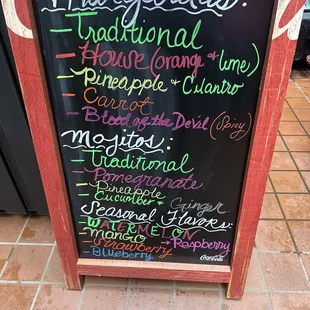 Margaritas:
- Traditional
- House (orange + lime)
- Pineapple + Cilantro
- Carrot
- Blood of the Devil (Spicy)
Mojitos:
- Traditional
- Pomegranate
- Pineapple
- Cucumber + Ginger
Seasonal Flavors:
- WATERMELON
- mango - Raspberry
- Strawberry
- Blueberry
Coca-Cola